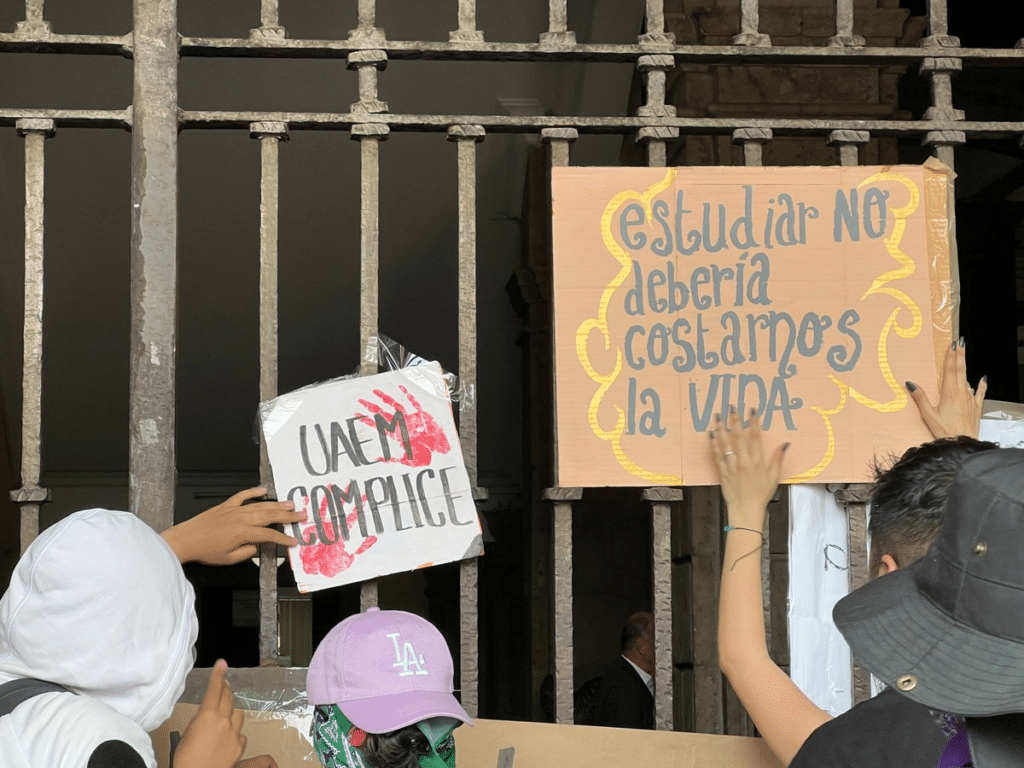 UAEM
COMPLICE
estudiar NO
debería
costarnos
la VIDA
LA